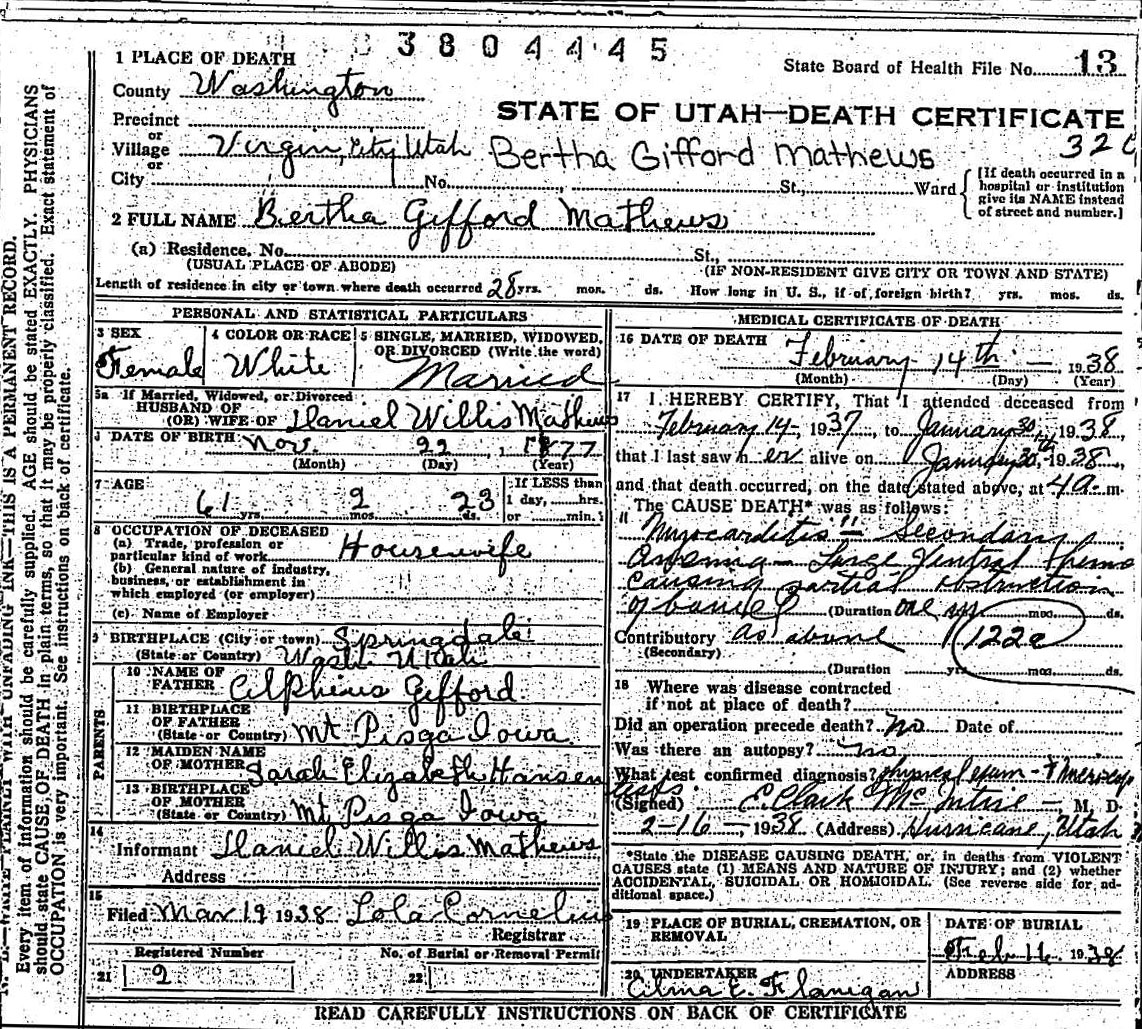 3804445
State Board of Health File No. 13
1 PLACE OF DEATH
County Washington
STATE OF UTAH—DEATH CERTIFICATE
Precinct
or
Village Virgin, City, Utah Bertha Gifford Mathews 32
or
City " No. St., Ward
[If death occurred in a
hospital or institution
give its NAME instead
of street and number.]
2 FULL NAME Bertha Gifford Mathews
(a) Residence. No. St.,
(USUAL PLACE OF ABODE) (IF NON-RESIDENT GIVE CITY OR TOWN AND STATE)
Length of residence in city or town where death occurred 28 yrs. mos. ds. How long in U. S., if of foreign birth? yrs. mos. ds.
PERSONAL AND STATISTICAL PARTICULARS
3 SEX
Female
4 COLOR OR RACE
White
5 SINGLE, MARRIED, WIDOWED,
OR DIVORCED (Write the word)
Married
5a If Married, Widowed, or Divorced
HUSBAND OF
(OR) WIFE OF Daniel Willis Mathews
DATE OF BIRTH Nov. 22, 1877
(Month) (Day) (Year)
7 AGE
61 yrs. 2 mos. 23 ds.
If LESS than
1 day, hrs.
or min.
8 OCCUPATION OF DECEASED
(a) Trade, profession or
particular kind of work Housewife
(b) General nature of industry,
business, or establishment in
which employed (or employer)
(c) Name of Employer
9 BIRTHPLACE (City or town) Springdale
(State or Country) Wash Utah
PARENTS
10 NAME OF
FATHER Alpheus Gifford
11 BIRTHPLACE
OF FATHER
(State or Country) Mt Pisga Iowa
12 MAIDEN NAME
OF MOTHER Sarah Elizabeth Hansen
13 BIRTHPLACE
OF MOTHER
(State or Country) Mt Pisga Iowa
14
Informant Daniel Willis Mathews
Address
15
Filed Mar 19 1938 Lola Cornelius
Registrar
Registered Number No. of Burial or Removal Permit
21 2 22
MEDICAL CERTIFICATE OF DEATH
16 DATE OF DEATH February 14th — 1938
(Month) (Day) (Year)
17 I HEREBY CERTIFY, That I attended deceased from
February 14, 1937, to January 30, 1938,
that I last saw her alive on January 30, 1938,
and that death occurred, on the date stated above, at 4 a. m.
The CAUSE DEATH* was as follows:
"Myocarditis" — Secondary
Anemia — Large Ventral
causing partial obstruction
of bowel (Duration one yrs. mos. ds.
Contributory As above 122c
(Secondary)
(Duration yrs. mos. ds.
18 Where was disease contracted
if not at place of death?
Did an operation precede death? no Date of
Was there an autopsy? no
What test confirmed diagnosis? physical exam -
tests.
(Signed) E. Clark McIntire — M. D.
2-16-, 1938 (Address) Hurricane, Utah
*State the DISEASE CAUSING DEATH, or, in deaths from VIOLENT
CAUSES state (1) MEANS AND NATURE OF INJURY; and (2) whether
ACCIDENTAL, SUICIDAL OR HOMICIDAL. (See reverse side for ad-
ditional space.)
19 PLACE OF BURIAL, CREMATION, OR
REMOVAL
DATE OF BURIAL
Feb 16 1938
20 UNDERTAKER
Alma E. Flanigan
ADDRESS
READ CAREFULLY INSTRUCTIONS ON BACK OF CERTIFICATE
WRITE PLAINLY WITH UNFADING INK—THIS IS A PERMANENT RECORD.
Every item of information should be carefully supplied. AGE should be stated EXACTLY. PHYSICIANS
should state CAUSE OF DEATH in plain terms, so that it may be properly classified. Exact statement of
OCCUPATION is very important. See instructions on back of certificate.